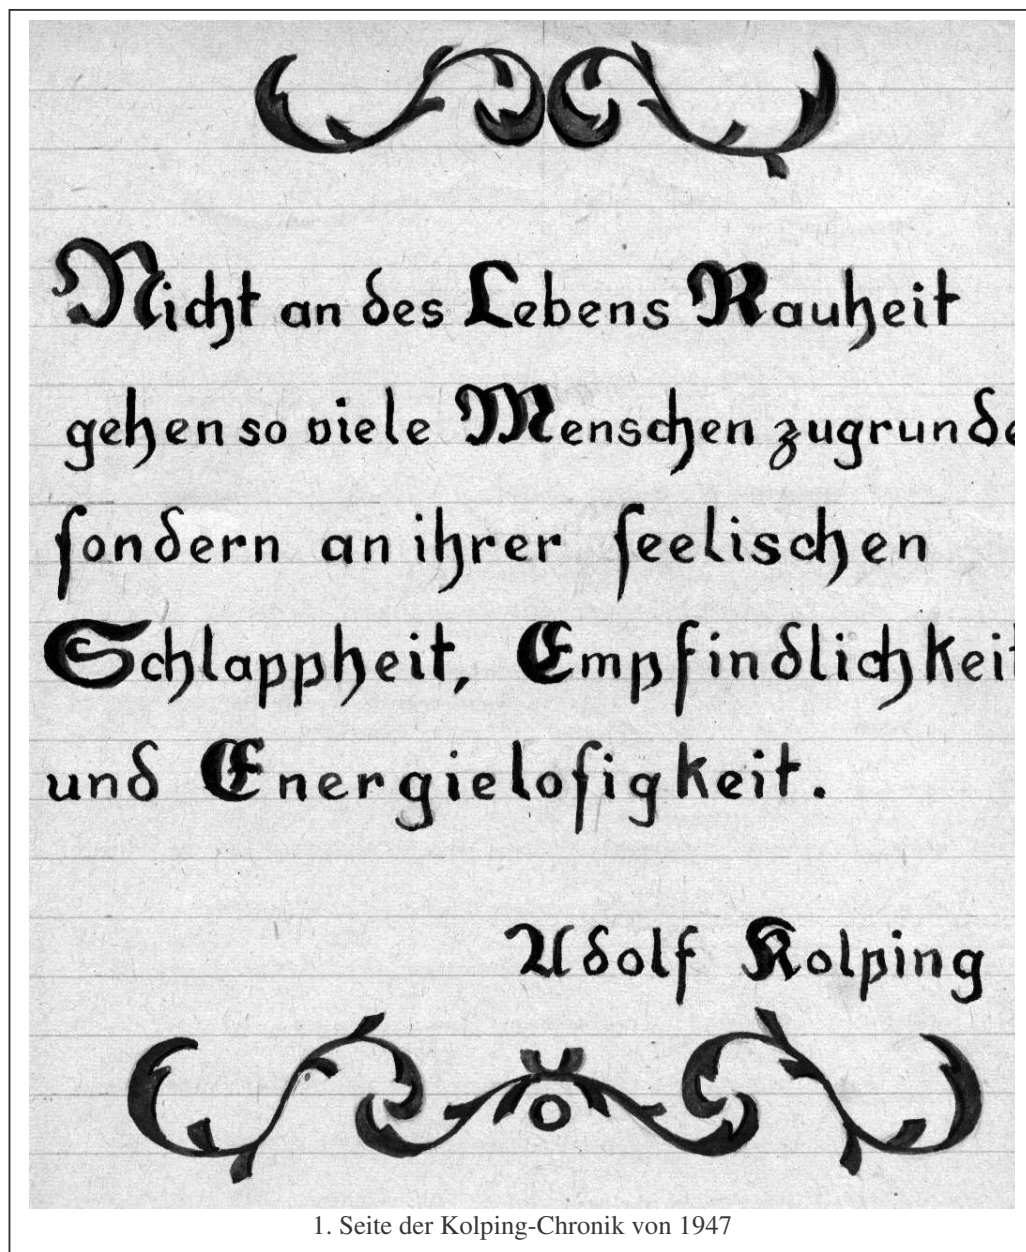 Nicht an des Lebens Rauheit
gehen so viele Menschen zugrunde
sondern an ihrer seelischen
Schlappheit, Empfindlichkeit
und Energielosigkeit.
Adolf Kolping
1. Seite der Kolping-Chronik von 1947